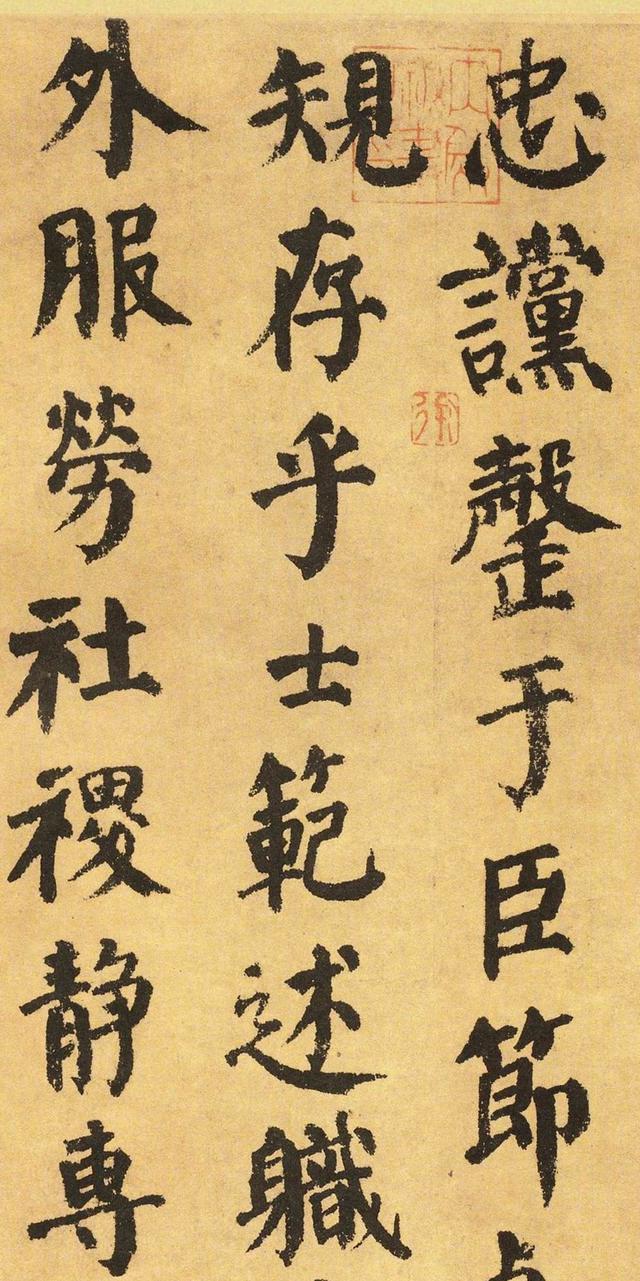 忠讜罄于臣節
規存乎士範述職
外服勞社稷靜專